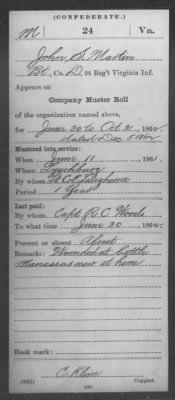 (CONFEDERATE.)
M 24 Va.
John S. Martin
Pvt, Co. D, 24 Reg't Virginia Inf.
Appears on
Company Muster Roll
of the organization named above,
for June 30 to Oct 31, 1862.
dated Dec 5 1862
Mustered into service:
When June 11, 1861.
Where Lynchburg
By whom Lt Col Langhorne
Period 1 Year
Last paid:
By whom Capt R.C. Woods
To what time June 30, 1862.
Present or absent Absent
Remarks: Wounded at battle
Manassas now at home
Book mark:
C. Kline
(642) Copyist.